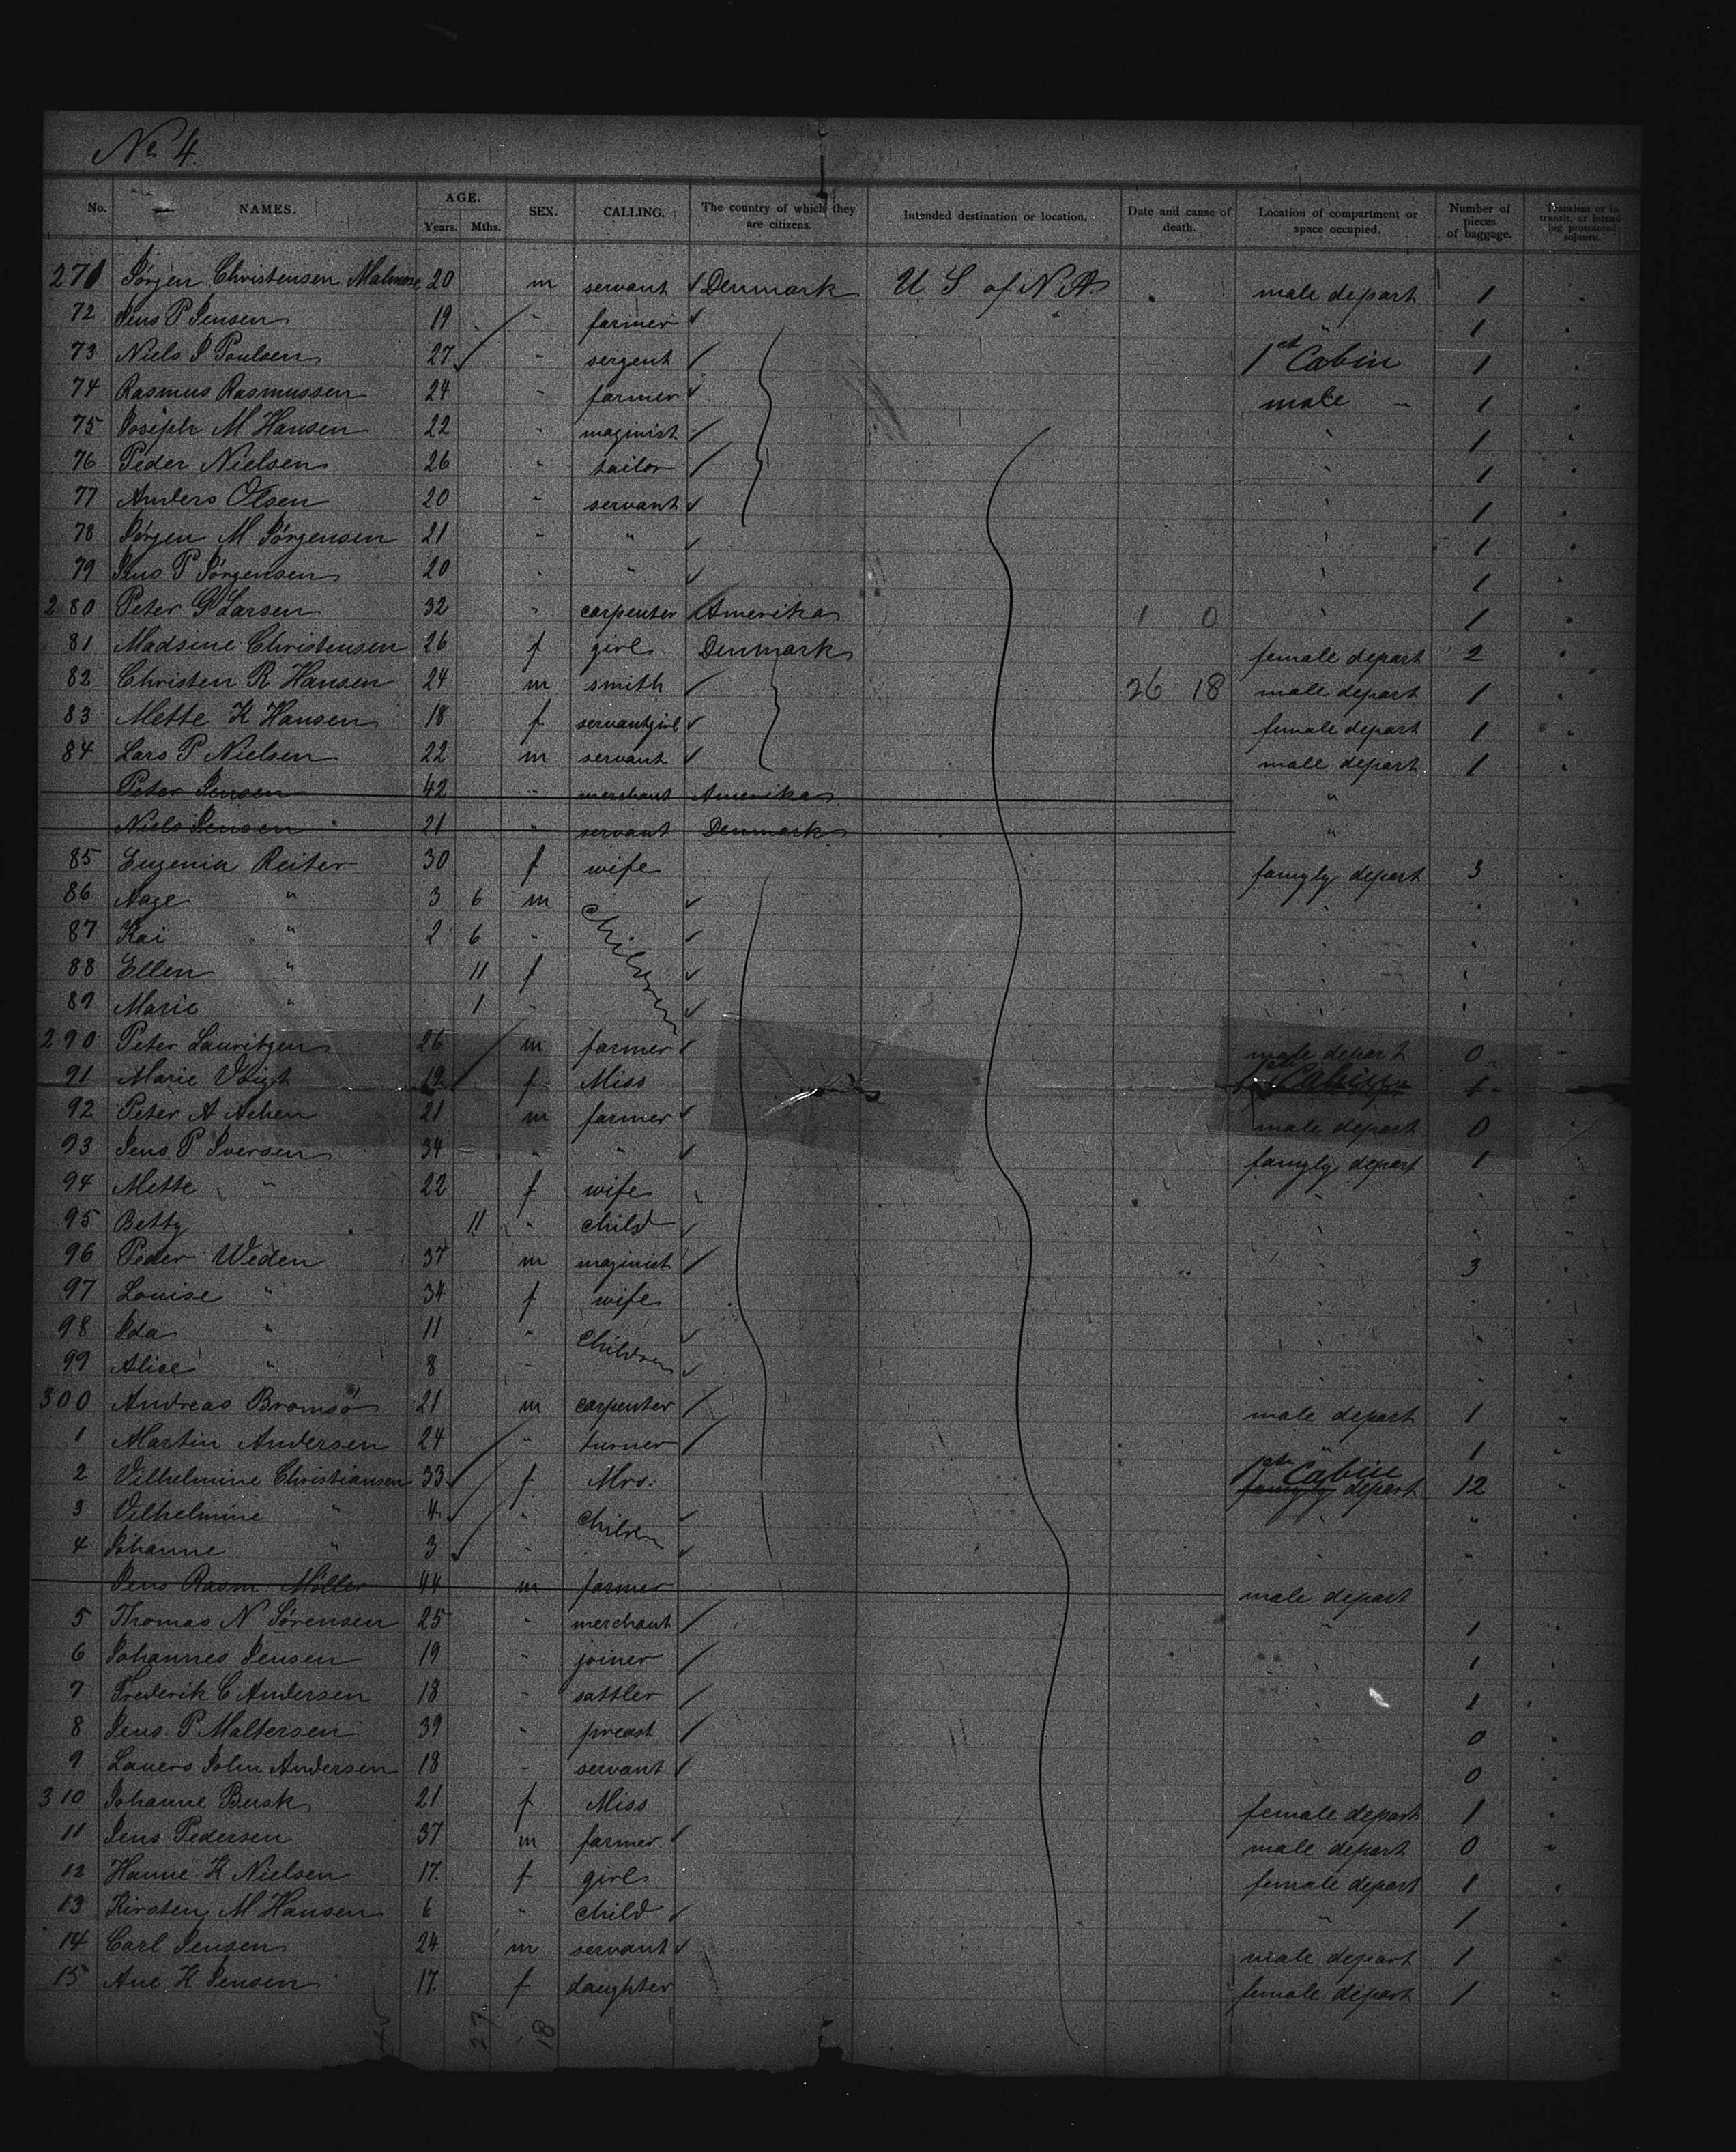 No 4.
No. NAMES. AGE. Years. Mths. SEX. CALLING. The country of which they are citizens. Intended destination or location. Date and cause of death. Location of compartment or space occupied. Number of pieces of baggage. Transient or in transit, or intending protracted sojourn.
271 Jørgen Christensen 20 m servant Denmark U. S. of N.A. male depart 1
72 Jens P Jensen 19 " farmer " 1
73 Niels J Poulsen 27 " sergent 1st Cabin 1
74 Rasmus Rasmussen 24 " farmer male " 1
75 Joseph M Hansen 22 " maginist " 1
76 Peder Nielsen 26 " tailor " 1
77 Anders Olsen 20 " servant " 1
78 Jørgen M Jørgensen 21 " " " 1
79 Jens P Jørgensen 20 " " " 1
280 Peter Larsen 32 " carpenter Amerika 1 0 " 1
81 Madsine Christensen 26 f girl Denmark female depart 2
82 Christen R Hansen 24 m smith 26 18 male depart 1
83 Mette K Hansen 18 f servantgirl female depart 1
84 Lars P Nielsen 22 m servant male depart 1
Peter Jensen 42 " merchant Amerika "
Niels Jensen 21 " servant Denmark "
85 Eugenia Reiter 30 f wife famyly depart 3
86 Aage " 3 6 m Children " "
87 Kai " 2 6 " " "
88 Ellen " 11 f " "
89 Marie " 1 " " "
290 Peter Lauritzen 26 m farmer male depart 0
91 Marie Voigt 19 f Miss Cabin 1
92 Peter A Achen 21 m farmer male depart 0
93 Jens P Iversen 34 " " famyly depart 1
94 Mette " 22 f wife " "
95 Betty 11 " child " "
96 Peder Weden 37 m maginist " 3
97 Louise " 34 f wife " "
98 Ida " 11 " Children " "
99 Alice " 8 " " "
300 Andreas Bromsø 21 m carpenter male depart 1
1 Martin Andersen 24 " turner " 1
2 Vilhelmine Christiansen 33 f Mrs. 1st Cabin famyly depart 12
3 Vilhelmine " 4 " Children " "
4 Johanne " 3 " " "
Jens Rasm. Møller 44 m farmer male depart
5 Thomas N Sørensen 25 " merchant " 1
6 Johannes Jensen 19 " joiner " 1
7 Frederik C Andersen 18 " sattler " 1
8 Jens P Maltersen 39 " preast " 0
9 John Andersen 18 " servant " 0
310 Johanne Busk 21 f Miss female depart 1
11 Jens Pedersen 37 m farmer male depart 0
12 Hanne K Nielsen 17 f girl female depart 1
13 Kirsten M Hansen 6 " child " 1
14 Carl Jensen 24 m servant male depart 1
15 Ane K Jensen 17 f daughter female depart 1
27 18